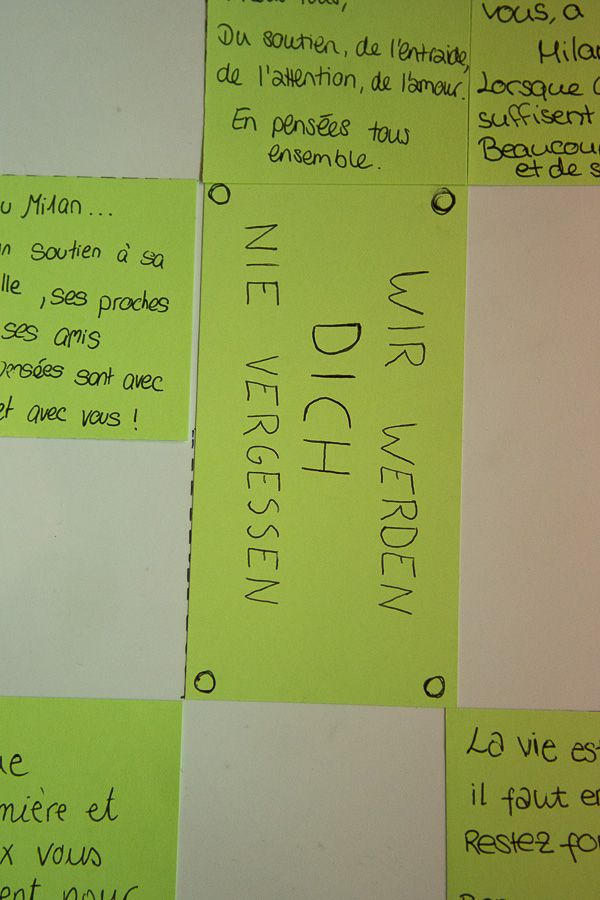 Du soutien, de l'entraide,
de l'attention, de l'amour.
En pensées tous
ensemble.
vous, a
Milan
Lorsque
suffisent
Beaucou
et de s
u Milan...
n soutien à sa
lle, ses proches
ses amis
pensées sont avec
et avec vous !
WIR WERDEN
DICH
NIE VERGESSEN
ue
mière et
x vous
ent pour
La vie est
il faut en
Restez fo